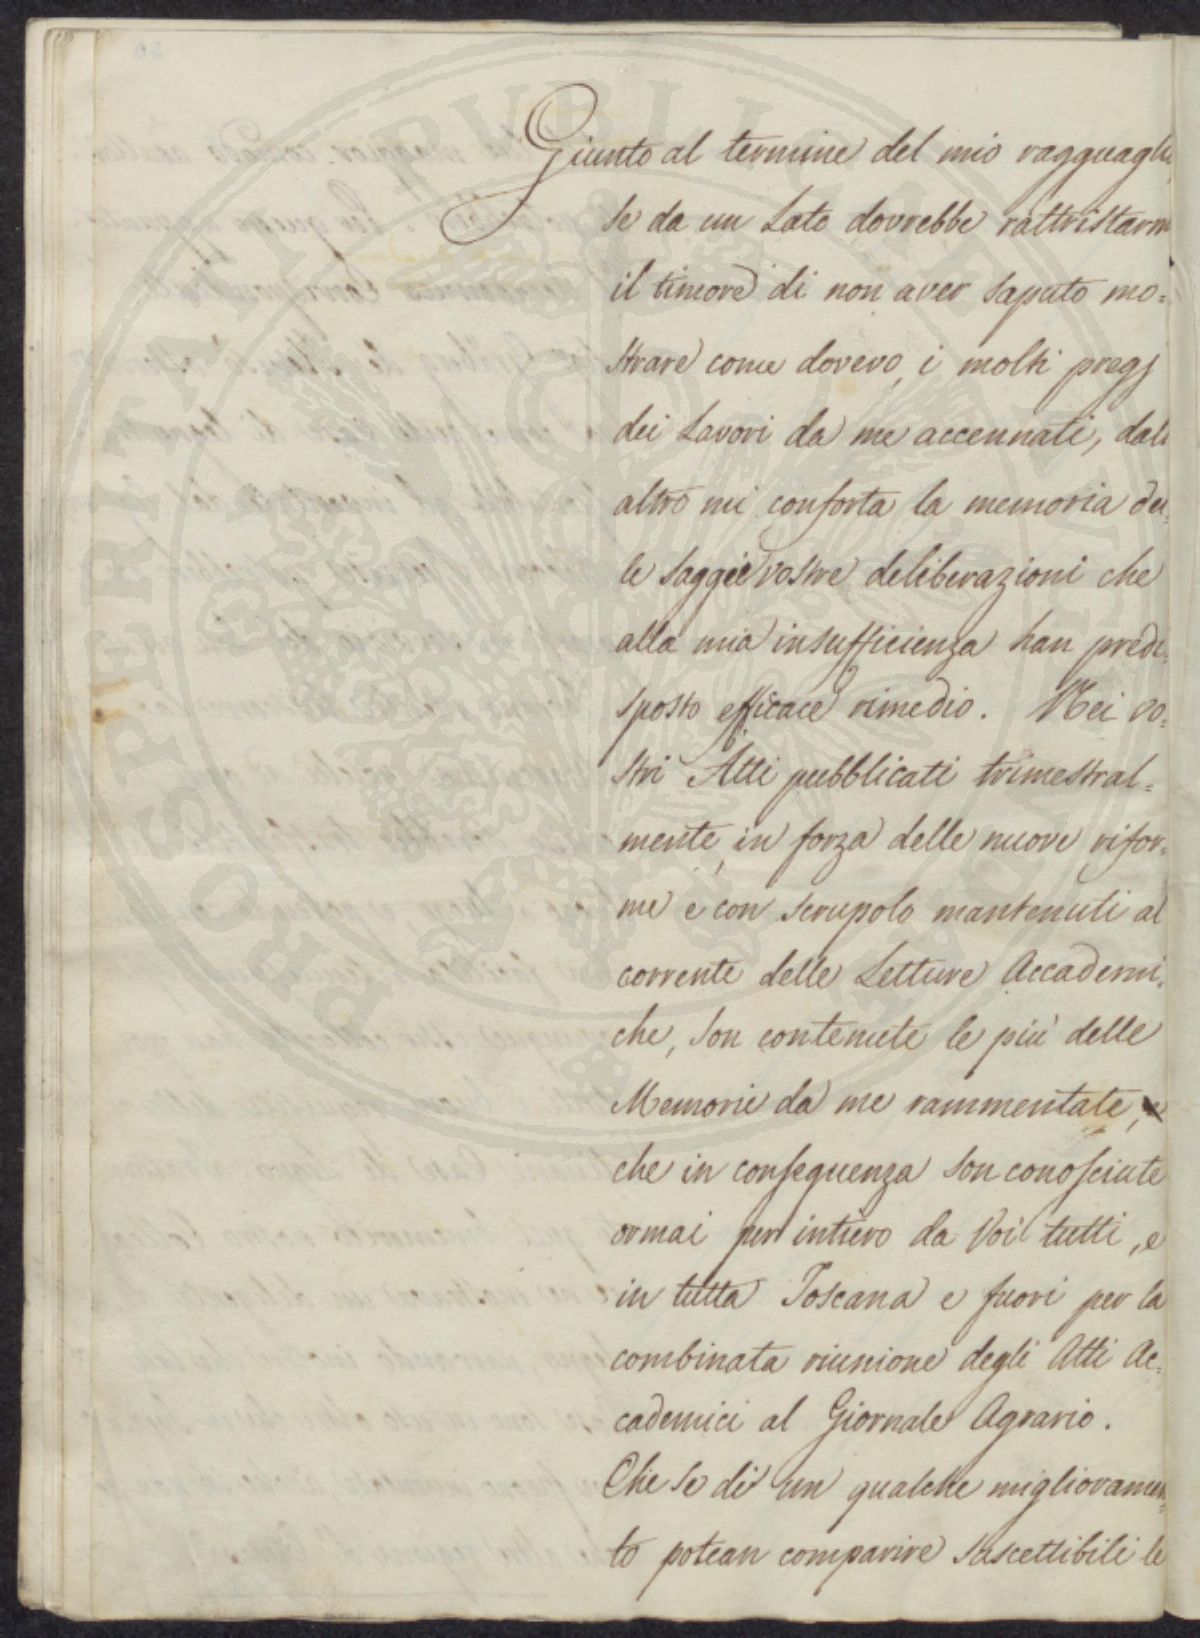 Giunto al termine del mio ragguagli
se da un Lato dovrebbe rattristarm
il timore di non aver saputo mo=
strare come dovevo, i molti pregj
dei Lavori da me accennati, dall
altro mi conforta la memoria del
le saggie vostre deliberazioni che
alla mia insufficienza han predi=
sposto efficace rimedio. Nei vo=
stri Atti pubblicati trimestral=
mente, in forza delle nuove rifor=
me e con scrupolo mantenuti al
corrente delle Letture Accademi=
che, son contenute le più delle
Memorie da me rammentate,
che in conseguenza son conosciute
ormai per intiero da Voi tutti, e
in tutta Toscana e fuori per la
combinata riunione degli Atti Ac=
cademici al Giornale Agrario.
Che se di un qualche miglioramen=
to potean comparire suscettibili le
PROSPERITATI PUBLICAE